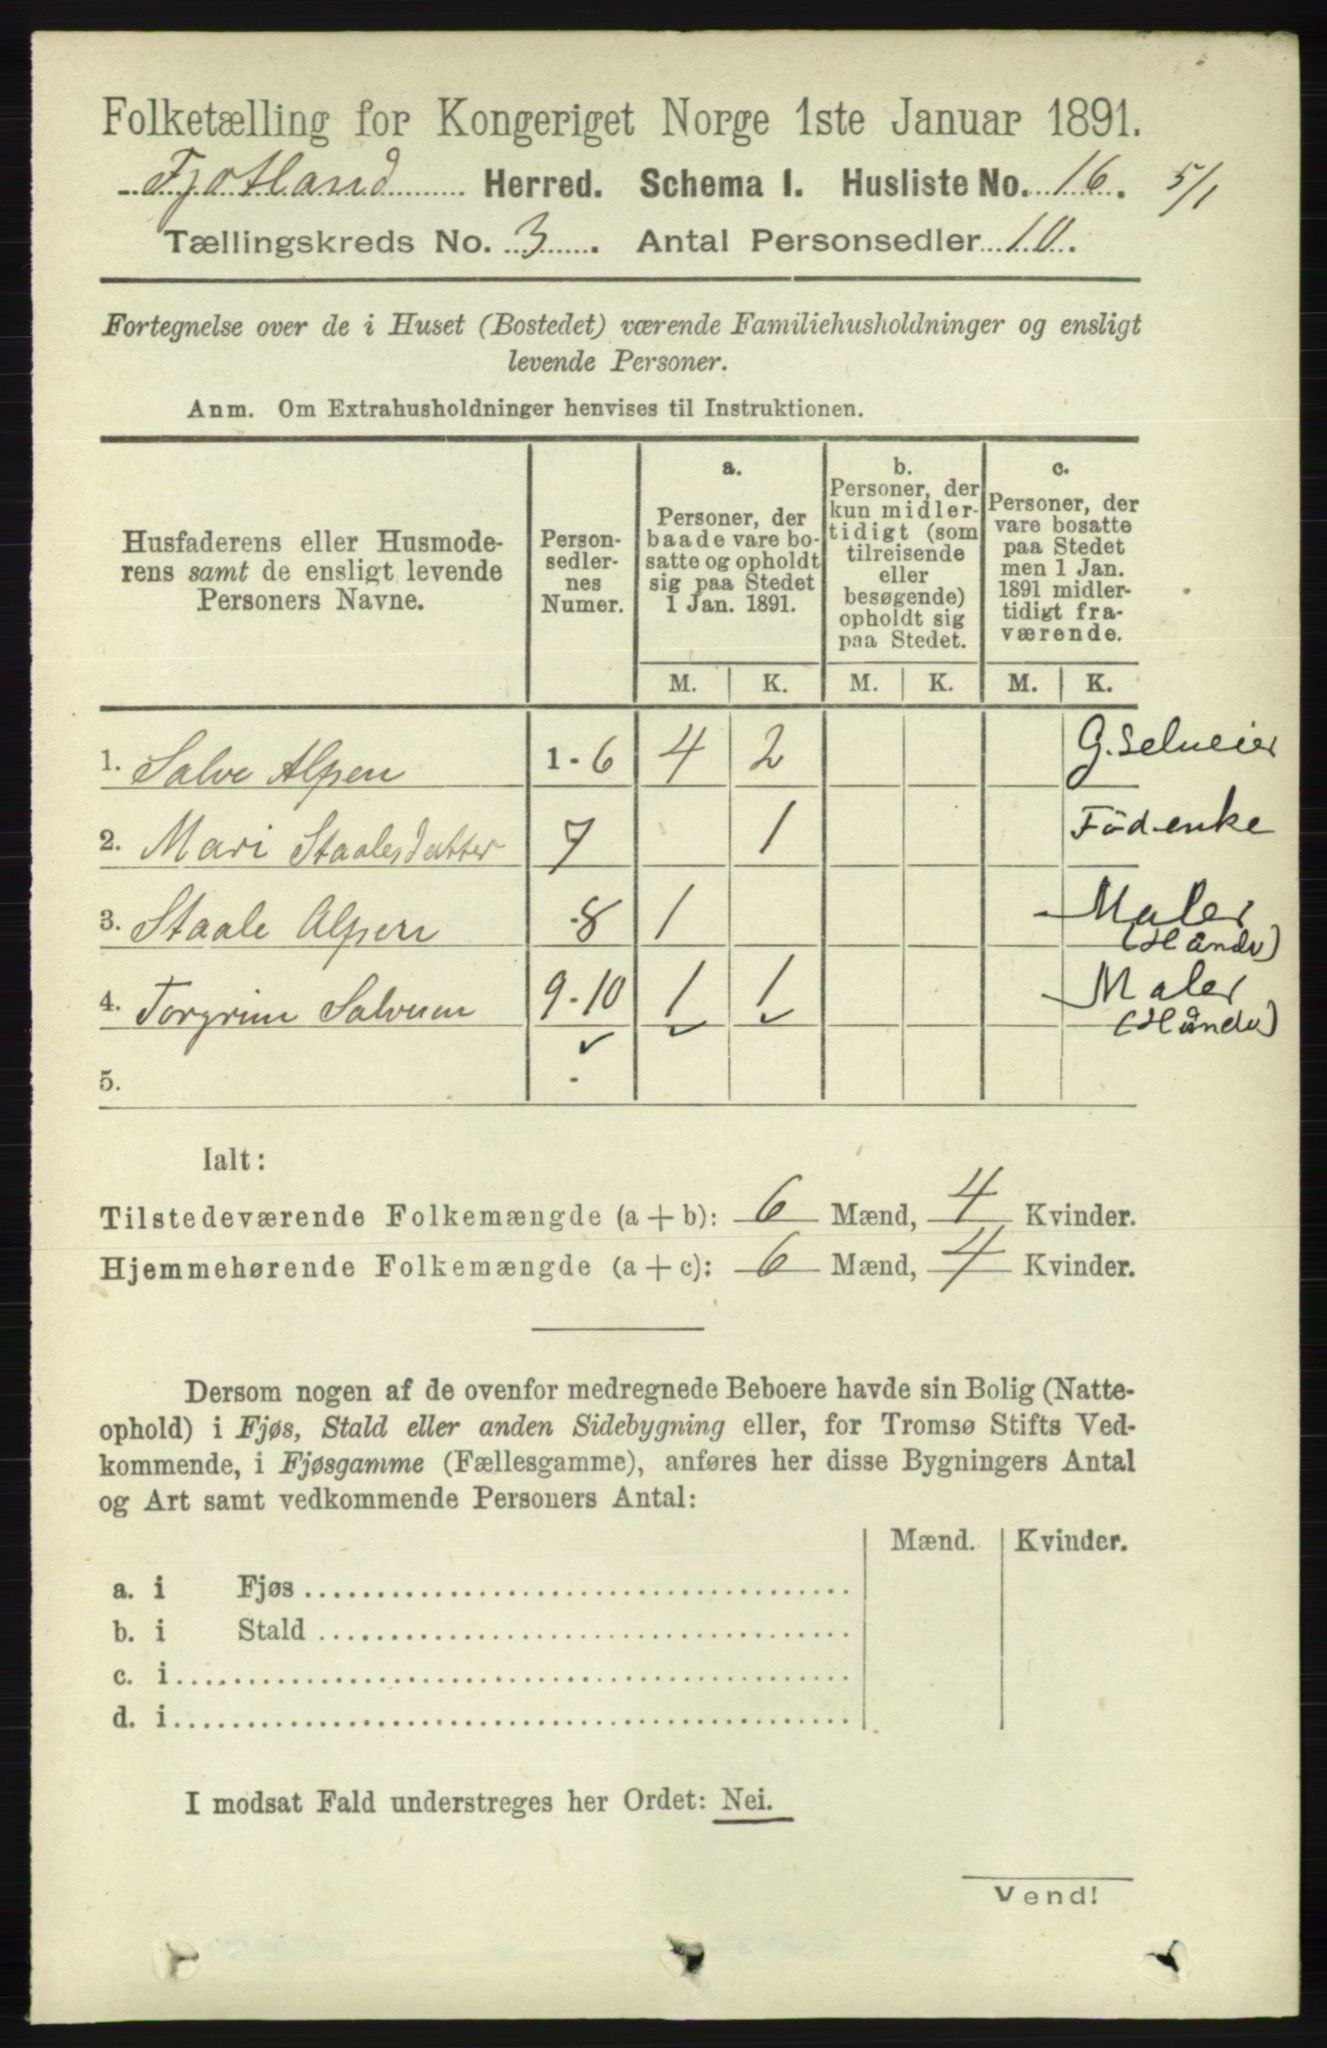 Folketælling for Kongeriget Norge 1ste Januar 1891.
Fjotland Herred. Schema I. Husliste No. 16. 5/1
Tællingskreds No. 3. Antal Personsedler 10.
Fortegnelse over de i Huset (Bostedet) værende Familiehusholdninger og ensligt
levende Personer.
Anm. Om Extrahusholdninger henvises til Instruktionen.
Husfaderens eller Husmode-
rens samt de ensligt levende
Personers Navne.
Person-
sedler-
nes
Numer.
a.
Personer, der
baade vare bo-
satte og opholdt
sig paa Stedet
1 Jan. 1891.
b.
Personer, der
kun midler-
tidigt (som
tilreisende
eller
besøgende)
opholdt sig
paa Stedet.
c.
Personer, der
vare bosatte
paa Stedet
men 1 Jan.
1891 midler-
tidigt fra-
værende.
M. K. M. K. M. K.
1. Salve Alpsen 1-6 4 2 G.selveier
2. Mari Staalesdatter 7 1 Föd.enke
3. Staale Alpsen -8 1 Maler
(Håndv)
4. Torgrim Salvesen 9-10 1 1 Maler
(Håndv)
5. -
Ialt:
Tilstedeværende Folkemængde (a + b): 6 Mænd, 4 Kvinder.
Hjemmehørende Folkemængde (a + c): 6 Mænd, 4 Kvinder.
Dersom nogen af de ovenfor medregnede Beboere havde sin Bolig (Natte-
ophold) i Fjøs, Stald eller anden Sidebygning eller, for Tromsø Stifts Ved-
kommende, i Fjøsgamme (Fællesgamme), anføres her disse Bygningers Antal
og Art samt vedkommende Personers Antal:
Mænd. Kvinder.
a. i Fjøs
b. i Stald
c. i
d. i
I modsat Fald understreges her Ordet: Nei.
Vend!